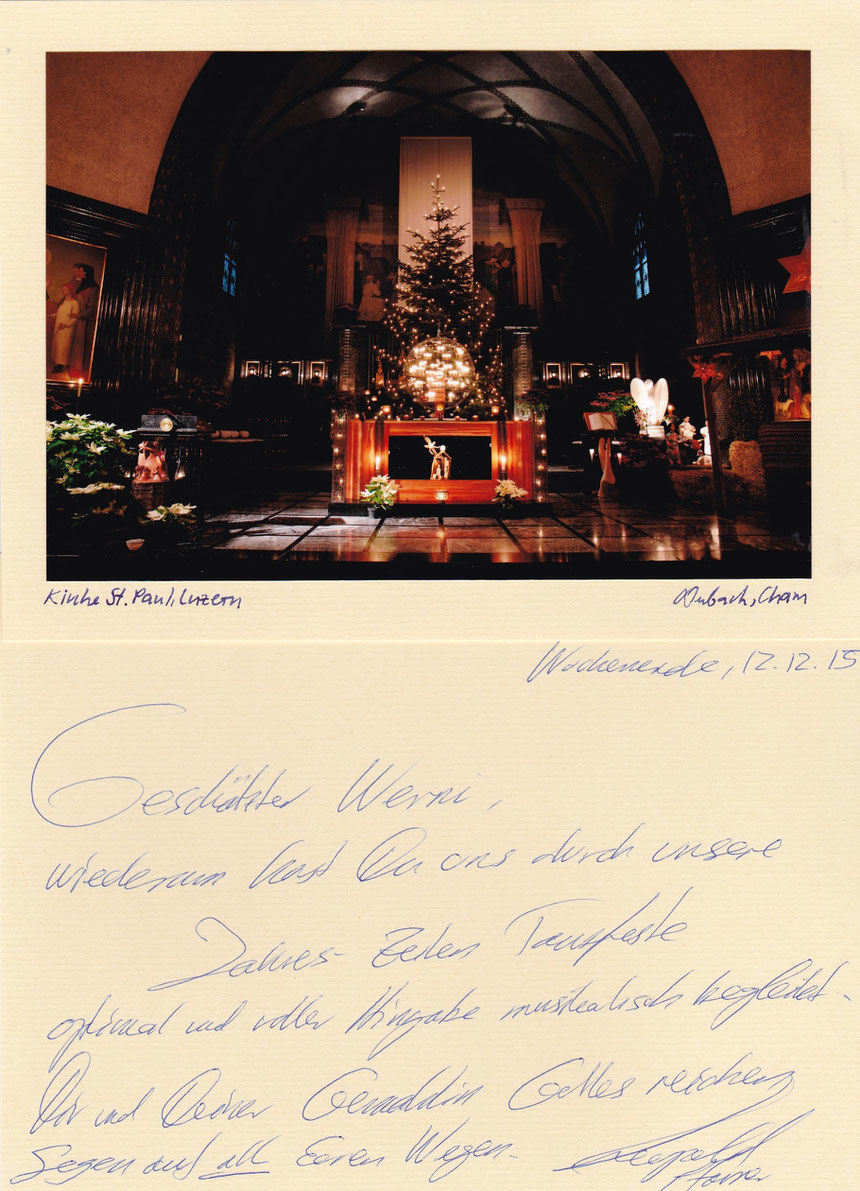 Kirche St. Paul, Luzern
Dubach, Cham
Wochenende, 12.12.15
Geschätzter Werni,
wiederum hast Du uns durch unsere
Jahres-Zeiten Tanzfeste
optimal und voller Hingabe musikalisch begleitet.
Dir und Deiner Gemahlin Gottes reichen
Segen auf all Euren Wegen.
Leopold
Pfarrer